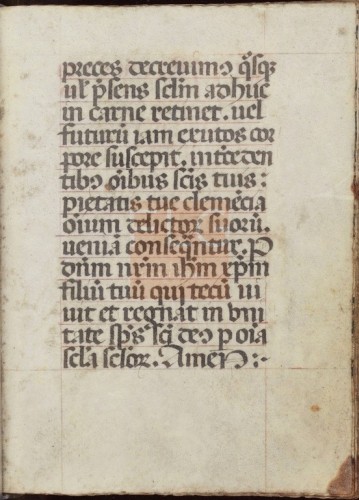 preces decreuimꝰ qͦsqꝫ
ul̓ p̄sens sclm̄ adhuc
in carne retinet. uel
futurū iam exutos cor
pore suscepit. intc̄eden
tibꝰ oībus scīs tuis:
pietatis tue clemēcia
oīuim delictoꝝ suoꝝ.
ueniā conseqn̄tur. P
dnm̄ nrm̄ ihm̄ xp̄m
filiū tuū qui tecū ui
uit et regnat in vni
tate sp̄s sc̄i deꝰ p oīa
scl̄a scl̄oꝝ. Amen:·